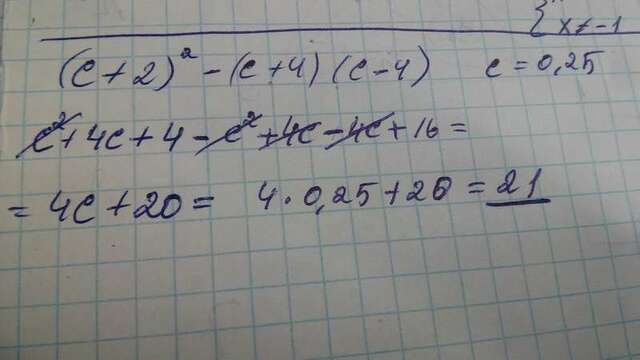 { x ≠ -1
(c + 2)² - (c + 4) (c - 4) c = 0,25
c² + 4c + 4 - c² + 4c - 4c + 16 =
= 4c + 20 = 4 · 0,25 + 20 = 21